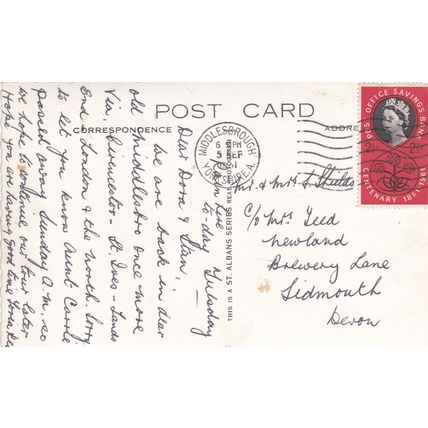 POST CARD
CORRESPONDENCE
ADDRE
Rain here
to-day Tuesday
Dear Dora & Stan,
We are back in dear
old Middlesboro once more
Via. Ilminster - St. Ives - Lands
End, London & the north. Sorry
to let you know Aunt Carrie
passed away Sunday A.M. so
we hope to continue our tour later
Hope you are having good time
THIS IS A "ST. ALBANS SERIES" REAL
MIDDLESBROUGH
6 PM
5 SEP
1961
YORKS. A.
POST OFFICE SAVINGS BANK
2½
CENTENARY 1861-1961
Mr. & Mrs. S.
c/o Mrs Teed
Newland
Brewery Lane
Sidmouth
Devon